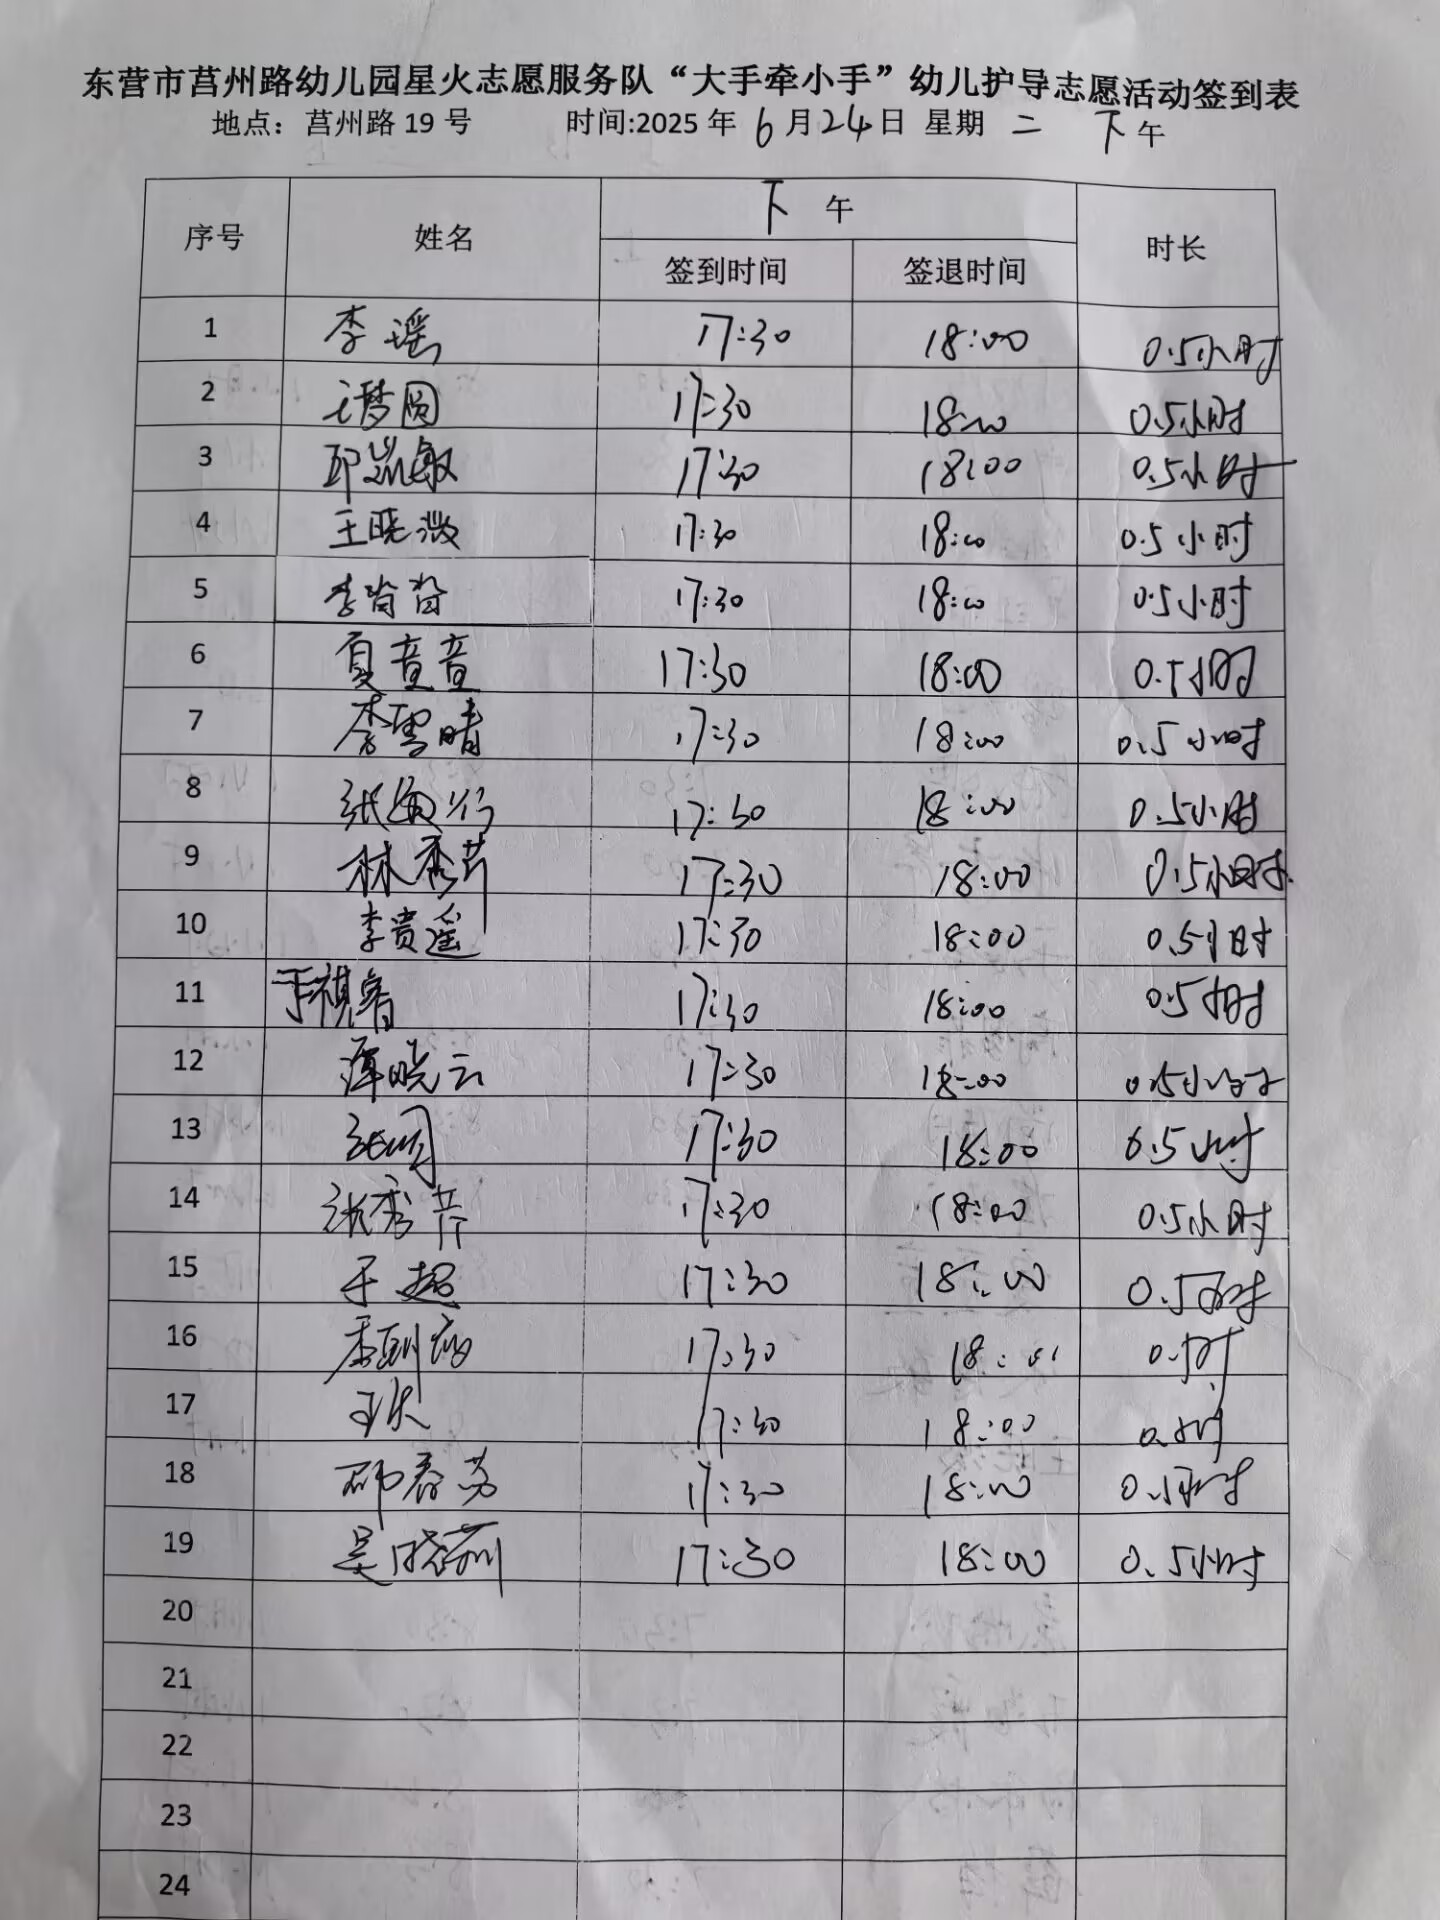 东营市莒州路幼儿园星火志愿服务队“大手牵小手”幼儿护导志愿活动签到表
地点：莒州路 19 号 时间:2025 年 6 月 24 日 星期 二 下 午
序号 姓名 下 午 时长
签到时间 签退时间
1 李瑶 17:30 18:00 0.5小时
2 梦圆 17:30 18:00 0.5小时
3 邱岚敏 17:30 18:00 0.5小时
4 王晓薇 17:30 18:00 0.5小时
5 李 17:30 18:00 0.5小时
6 夏童童 17:30 18:00 0.5小时
7 李雪晴 17:30 18:00 0.5小时
8 张 17:30 18:00 0.5小时
9 林秀芹 17:30 18:00 0.5小时
10 李贵遥 17:30 18:00 0.5小时
11 于祺睿 17:30 18:00 0.5小时
12 晓云 17:30 18:00 0.5小时
13 17:30 18:00 0.5小时
14 张秀芹 17:30 18:00 0.5小时
15 于超 17:30 18:00 0.5小时
16 17:30 18:00
17 17:30 18:00
18 春苏 17:30 18:00
19 吴晓莉 17:30 18:00 0.5小时
20
21
22
23
24